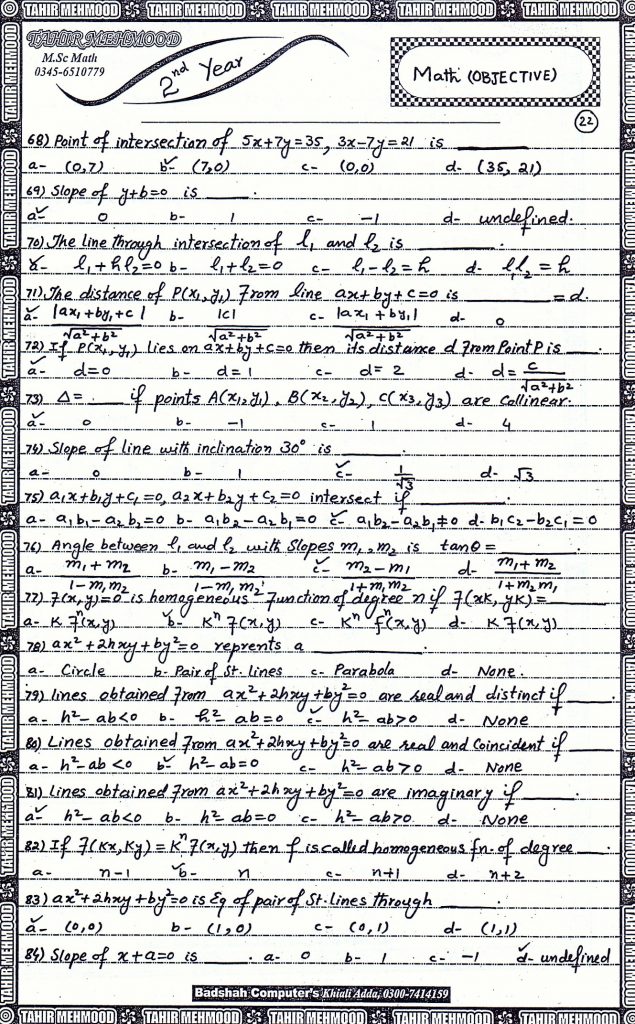 TAHIR MEHMOOD TAHIR MEHMOOD TAHIR MEHMOOD TAHIR MEHMOOD TAHIR MEHMOOD
TAHIR MEHMOOD
M.Sc Math
0345-6510779
2nd Year
Math (OBJECTIVE)
22
68) Point of intersection of 5x+7y=35, 3x-7y=21 is ______
a- (0,7) b- ✓ (7,0) c- (0,0) d- (35, 21)
69) Slope of y+b=0 is ____.
a- ✓ 0 b- 1 c- -1 d- undefined.
70) The line through intersection of l₁ and l₂ is ______.
a- ✓ l₁+hl₂=0 b- l₁+l₂=0 c- l₁-l₂=h d- l₁l₂=h
71) The distance of P(x₁,y₁) from line ax+by+c=0 is ______ =d.
a- ✓ |ax₁+by₁+c|/√a²+b² b- |c|/√a²+b² c- |ax₁+by₁|/√a²+b² d- 0
72) If P(x₁,y₁) lies on ax+by+c=0 then its distance d from Point P is ___.
a- ✓ d=0 b- d=1 c- d=2 d- d=c/√a²+b²
73) Δ=____ if points A(x₁,y₁), B(x₂,y₂), C(x₃,y₃) are collinear.
a- ✓ 0 b- -1 c- 1 d- 4
74) Slope of line with inclination 30° is ____.
a- 0 b- 1 c- ✓ 1/√3 d- √3
75) a₁x+b₁y+c₁=0, a₂x+b₂y+c₂=0 intersect if ______.
a- a₁b₁-a₂b₂=0 b- a₁b₂-a₂b₁=0 c- ✓ a₁b₂-a₂b₁≠0 d- b₁c₂-b₂c₁=0
76) Angle between l₁ and l₂ with Slopes m₁,m₂ is tanθ=______.
a- m₁+m₂/1-m₁m₂ b- m₁-m₂/1-m₁m₂ c- ✓ m₂-m₁/1+m₁m₂ d- m₁+m₂/1+m₂m₁
77) f(x,y)=0 is homogeneous function of degree n if f(xK, yK)=____
a- K fⁿ(x,y) b- ✓ Kⁿ f(x,y) c- Kⁿ fⁿ(x,y) d- K f(x,y)
78) ax²+2hxy+by²=0 reprents a ______.
a- Circle b- Pair of St. lines c- Parabola d- None.
79) lines obtained from ax²+2hxy+by²=0 are real and distinct if ____.
a- h²-ab<0 b- h²-ab=0 c- ✓ h²-ab>0 d- None
80) Lines obtained from ax²+2hxy+by²=0 are real and Coincident if ____
a- h²-ab<0 b- ✓ h²-ab=0 c- h²-ab>0 d- None
81) Lines obtained from ax²+2hxy+by²=0 are imaginary if ____.
a- ✓ h²-ab<0 b- h²-ab=0 c- h²-ab>0. d- None
82) If f(Kx,Ky)=Kⁿf(x,y) then f is called homogeneous fn. of degree ___.
a- n-1 b- ✓ n c- n+1 d- n+2
83) ax²+2hxy+by²=0 is Eq of pair of St. lines through ____.
a- ✓ (0,0) b- (1,0) c- (0,1) d- (1,1)
84) Slope of x+a=0 is ____. a- 0 b- 1 c- -1 d- ✓ undefined
Badshah Computer's Khiali Adda, 0300-7414159
TAHIR MEHMOOD TAHIR MEHMOOD TAHIR MEHMOOD TAHIR MEHMOOD TAHIR MEHMOOD